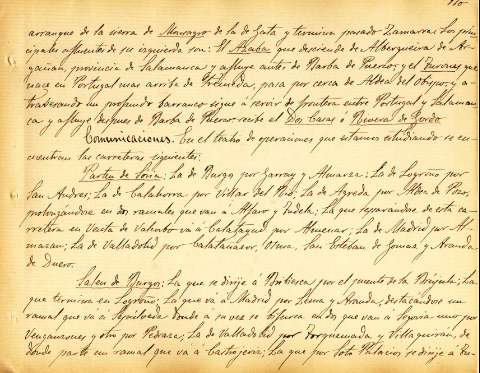 110
arranque de la sierra de Mesasagro de la de Gata y termina pasado Zamarra: Los prin-
cipales afluentes de su izquierda son: El Azaba que desciende de Alberguería de Ar-
gañan, provincia de Salamanca y afluye antes de Barba de Puerco; y el Turones que
nace en Portugal mas arriba de Freineda, pasa por cerca de Aldea del Obispo, y a-
travesando un profundo barranco sigue á servir de frontera entre Portugal y Salaman-
ca y afluye despues de Barba de Puerco recibe el Dos Casas ó Rivera de Gordo
Comunicaciones. En el teatro de operaciones que estamos estudiando se en-
cuentran las carreteras siguientes:
Parten de Soria: La de Burgo por Garray y Almarza; La de Logroño por
San Andres; La de Calahorra por Villar del Rio; La de Agreda por Aldea de Pozo,
prolongandose en dos ramales que van á Alfaro y Tudela; La que separándose de esta ca-
rretera en Venta de Valcorbo va á Calatayud por Almenar; La de Madrid por Al-
mazan; La de Valladolid por Calatañazor, Osma, San Esteban de Gormaz y Aranda
de Duero.
Salen de Burgos: La que se dirije á Bribiesca por el puente de la Brújula; La
que termina en Logroño; La que vá á Madrid por Lerma y Aranda, destacándose un
ramal que vá á Sepúlveda donde á su vez se bifurca en dos que van á Segovia uno por
y otro por Pedraza; La de Valladolid por Torquemada, y Villaquirán, de
donde parte un ramal que va á Castrojeriz; La que por Soto Palacios se dirije á